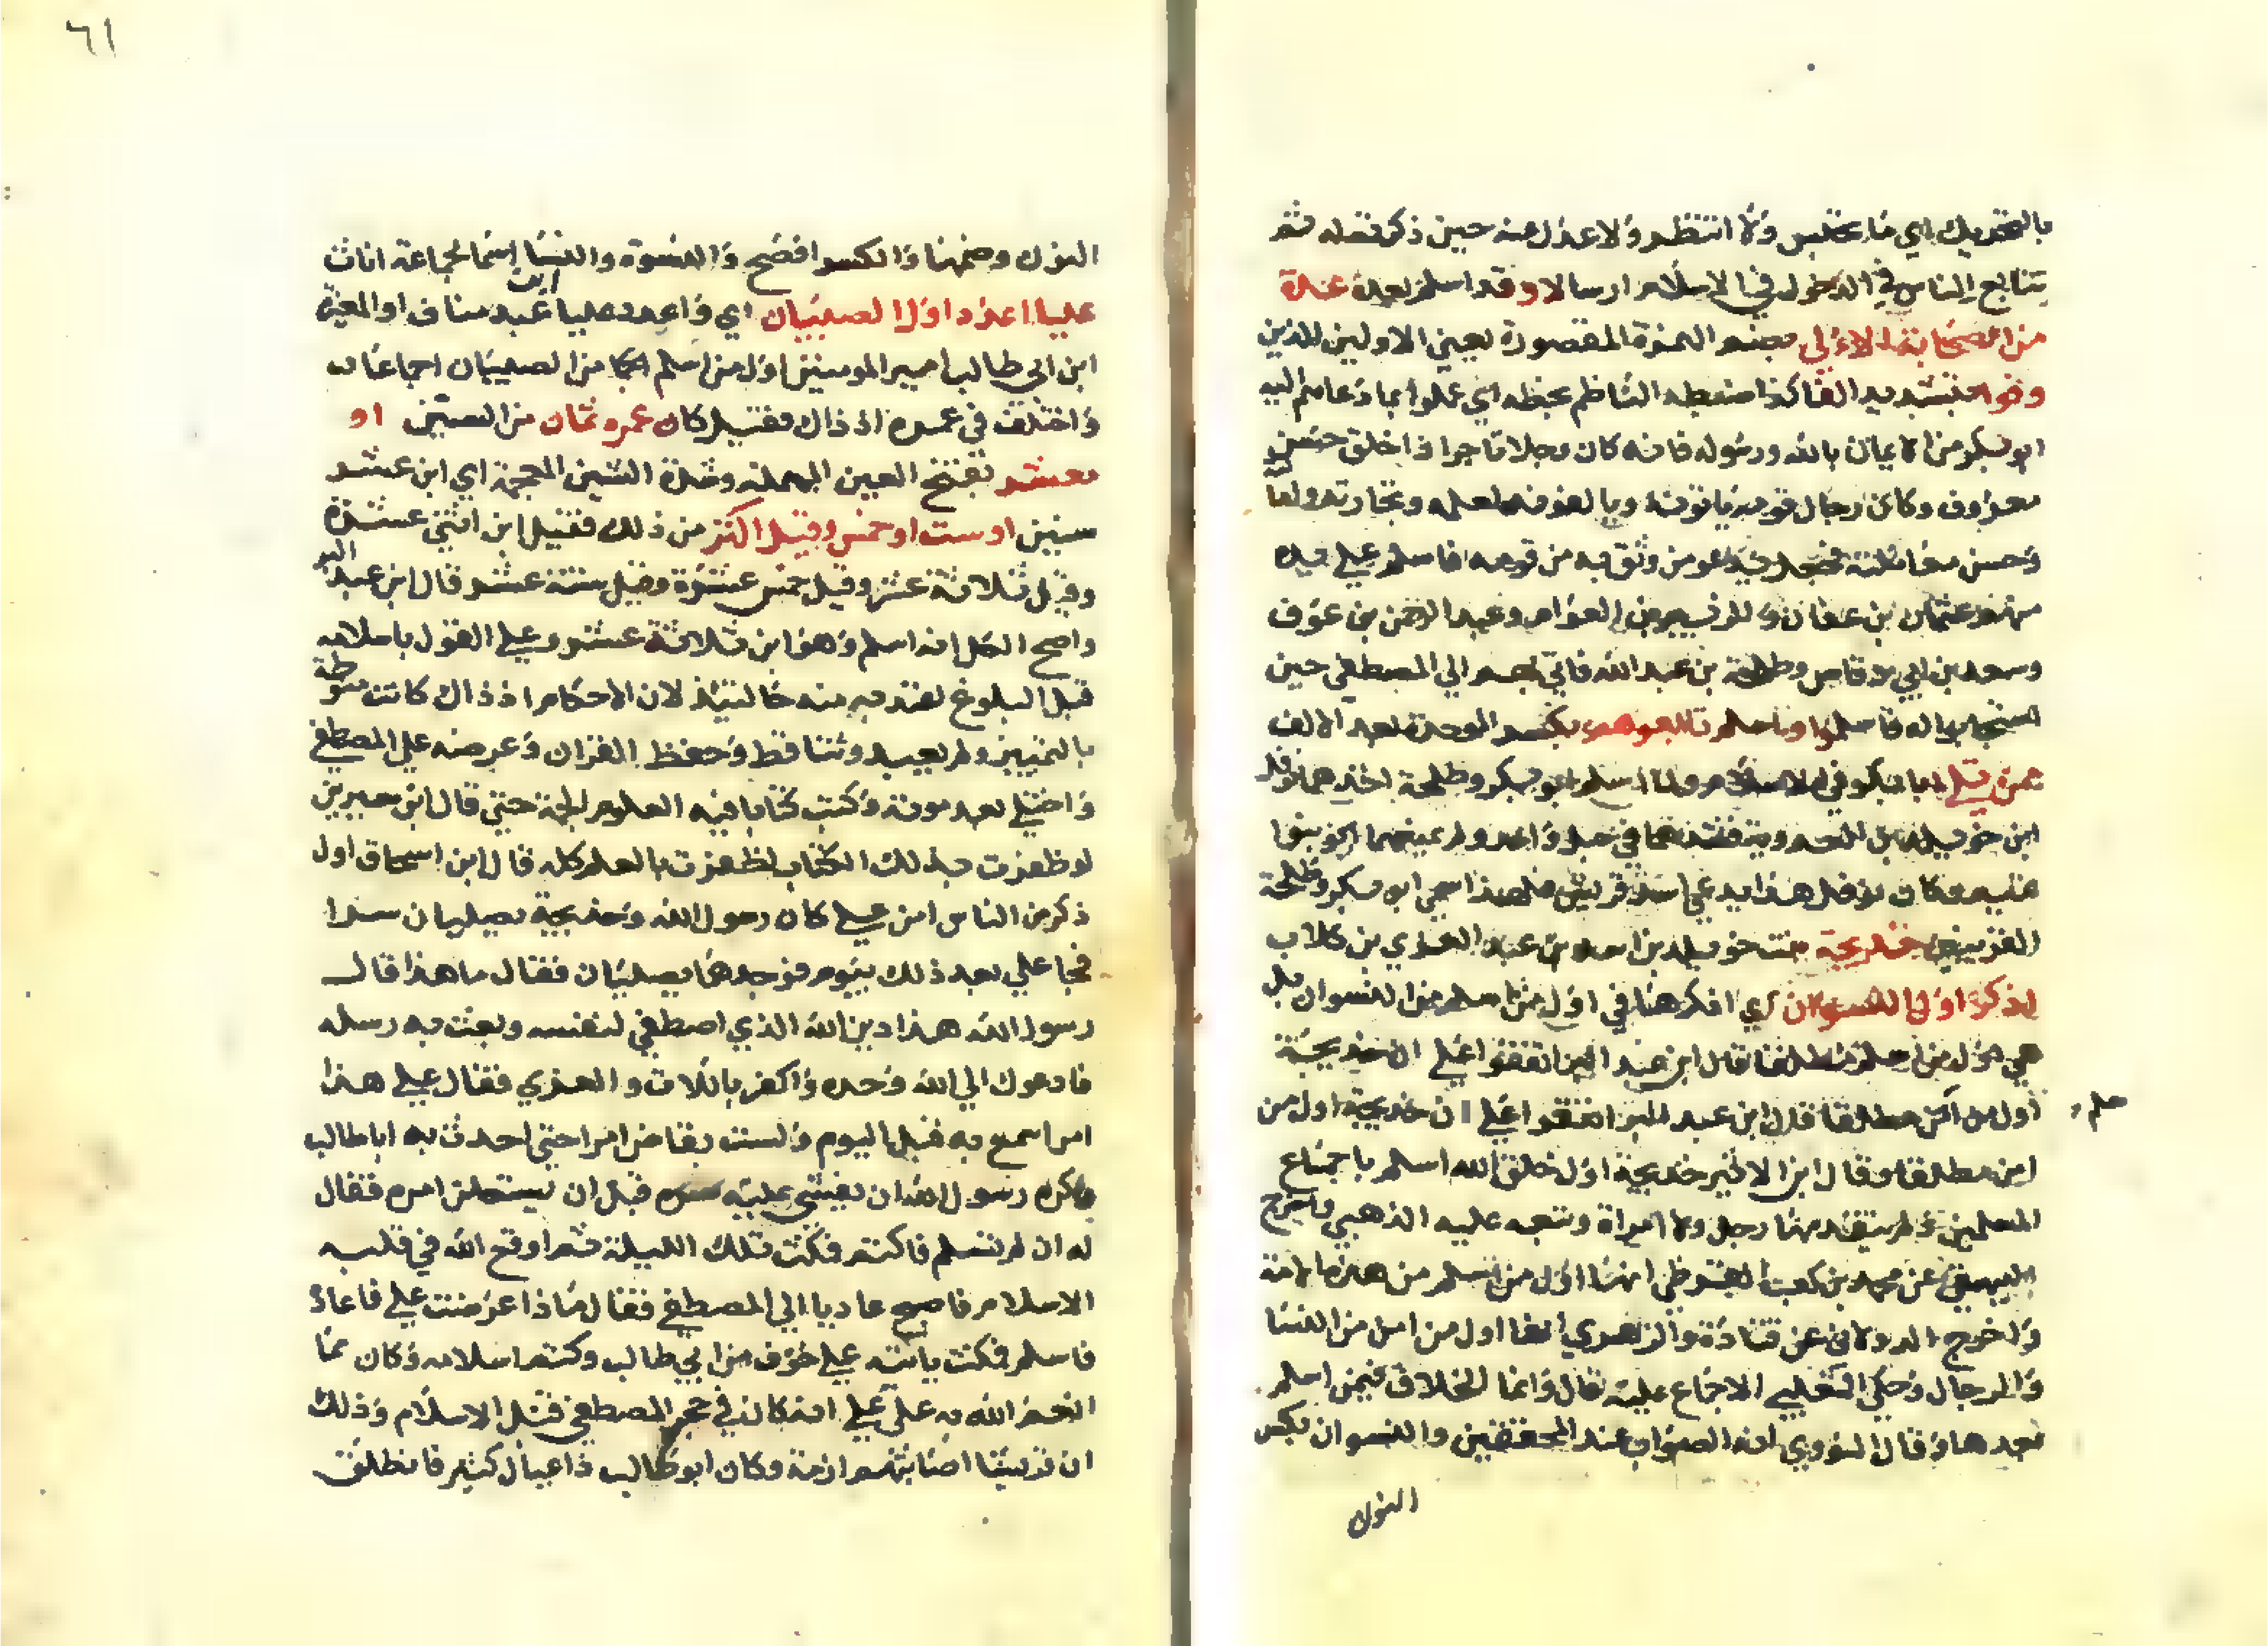 بالتحريك اي ما تحبس ولا انتظر ولا عدل عنه حين ذكر نقله ثم
تتابع الناس في الدخول في الاسلام ارسالا وقد اسلم بعده عدة
من الصحابة الاولي بضم الهمزة المقصورة يعني الاولين الذين
وفوا بتشديد الفا كذا ضبطه الناظم بخطه اي عملوا بما دعاهم اليه
ابو بكر من الايمان بالله ورسوله فانه كان رجلا تاجرا ذا خلق حسن
معروف وكان رجال قومه ياتونه ويالفونه لعلمه وتجارته
وحسن مجالسته فجعل يدعو من وثق به من قومه فاسلم علي يده
منهم عثمان بن عفان والزبير بن العوام وعبد الرحمن بن عوف
وسعد بن ابي وقاص وطلحة بن عبد الله فاتي بهم الي المصطفي حين
استجابوا له فاسلموا بكسر الموحدة بعد الالف
ولما اسلم ابو بكر وطلحة اخذهما نوفل
ابن خويلد بن العدوية فشدهما في حبل واحد ولم يمنعهما بنوا
تيم وكان نوفل هذا يدعي اسد قريش فلهذا سمي ابو بكر وطلحة
القرينين خديجة بنت خويلد بن اسد بن عبد العزي بن كلاب
اذكر اول النسوان اي اذكرهنا في اول من اسلم من النسوان بل
هي اول من اسلم مطلقا قال ابن عبد البر اتفقوا علي ان خديجة
اول من امن مطلقا قال ابن عبد البر اتفقوا علي ان خديجة اول من
امن مطلقا وقال ابن الاثير خديجة اول خلق الله اسلم باجماع
المسلمين ولم يتقدمها رجل ولا امراة وتبعه عليه الذهبي واخرج
البيهقي عن محمد بن كعب القرظي انها اول من اسلم من هذه الامة
واخرج الدولابي عن قتادة والزهري انها اول من امن من النسا
والرجال وحكي الثعلبي الاجماع عليه قال وانما الخلاف فيمن اسلم
بعدها وقال النووي انه الصواب عند المحققين والنسوان بكسر
النون
٦١
النون وضمها والكسر افصح والنسوة والنسا اسما لجماعة اناث
عليا اعدد اول الصبيان اي واعدد عليا ابن عبد مناف او المغيرة
ابن ابي طالب امير المومنين اول من اسلم من الصبيان اجماعا
واختلف في عمره اذ ذاك فقيل كان عمره ثمان من السنين او
بعشر بفتح العين المهملة وشدة الشين المعجمة اي ابن عشر
سنين او ست او خمس وقيل اكثر من ذلك فقيل ابن اثنتي عشرة
وقيل ثلاثة عشر وقيل خمس عشرة وقيل ستة عشر قال ابن عبد البر
واصح الكل انه اسلم وهو ابن ثلاثة عشر وعلي القول باسلامه
قبل البلوغ يعتد به منه حالتيذ لان الاحكام اذ ذاك كانت منوطة
بالتمييز ولم يعبد وثنا قط وحفظ القران وعرضه علي المصطفي
واختلي بعد موته وكتب كتابا فيه العلوم الجمة حتي قال ابن سيرين
لو ظفرت بذلك الكتاب لظفرت بالعلم كله قال ابن اسحاق اول
ذكر من الناس امن علي كان رسول الله وخديجة يصليان سرا
فجا علي بعد ذلك بيوم فوجدهما يصليان فقال ما هذا قال
رسول الله هذا دين الله الذي اصطفي لنفسه وبعث به رسله
فادعوك الي الله وحده واكفر باللات والعزي فقال علي هذا
امر اسمع به قبل اليوم ولست بقاض امرا حتي احدث به ابا طالب
وكره رسول الله ان يفشي عليه سره قبل ان يستعلن امره فقال
له ان لم تسلم فاكتم فمكث تلك الليلة ثم اوقع الله في قلبه
الاسلام فاصبح غاديا الي المصطفي فقال ماذا عرضت علي فاعاد
فاسلم فمكث ياتيه علي خوف من ابي طالب وكتم اسلامه وكان مما
انعم الله به علي علي انه كان في حجر المصطفي قبل الاسلام وذلك
ان قريشا اصابتهم ازمة وكان ابو طالب ذا عيال كثير فانطلق